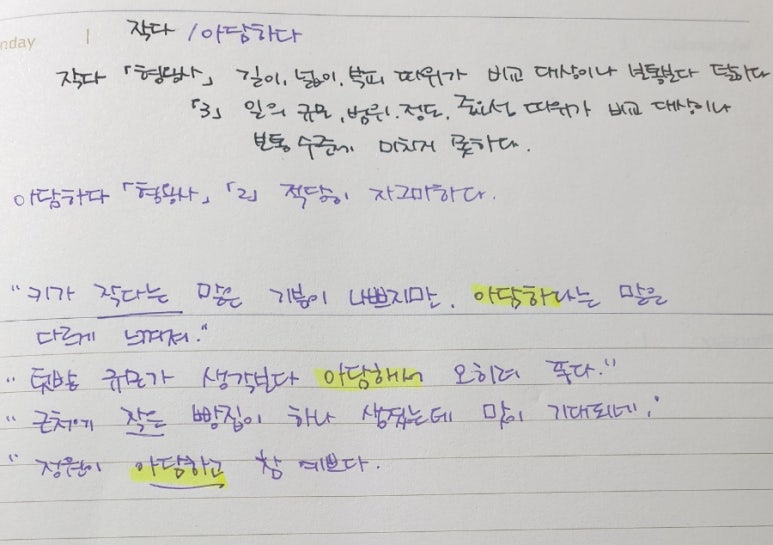 nday
작다 / 아담하다
작다 「형용사」 길이, 넓이, 부피 따위가 비교 대상이나 보통보다 덜하다
「3」 일의 규모, 범위, 정도, 중요성 따위가 비교 대상이나
보통 수준에 미치지 못하다.
아담하다 「형용사」 「2」 적당히 자그마하다.
"키가 작다는 말은 기분이 나쁘지만, 아담하다는 말은
다르게 느껴져."
"텃밭 규모가 생각보다 아담해서 오히려 좋다."
"근처에 작은 빵집이 하나 생겼는데 맛이 기대되네."
"정원이 아담하고 참 예쁘다.